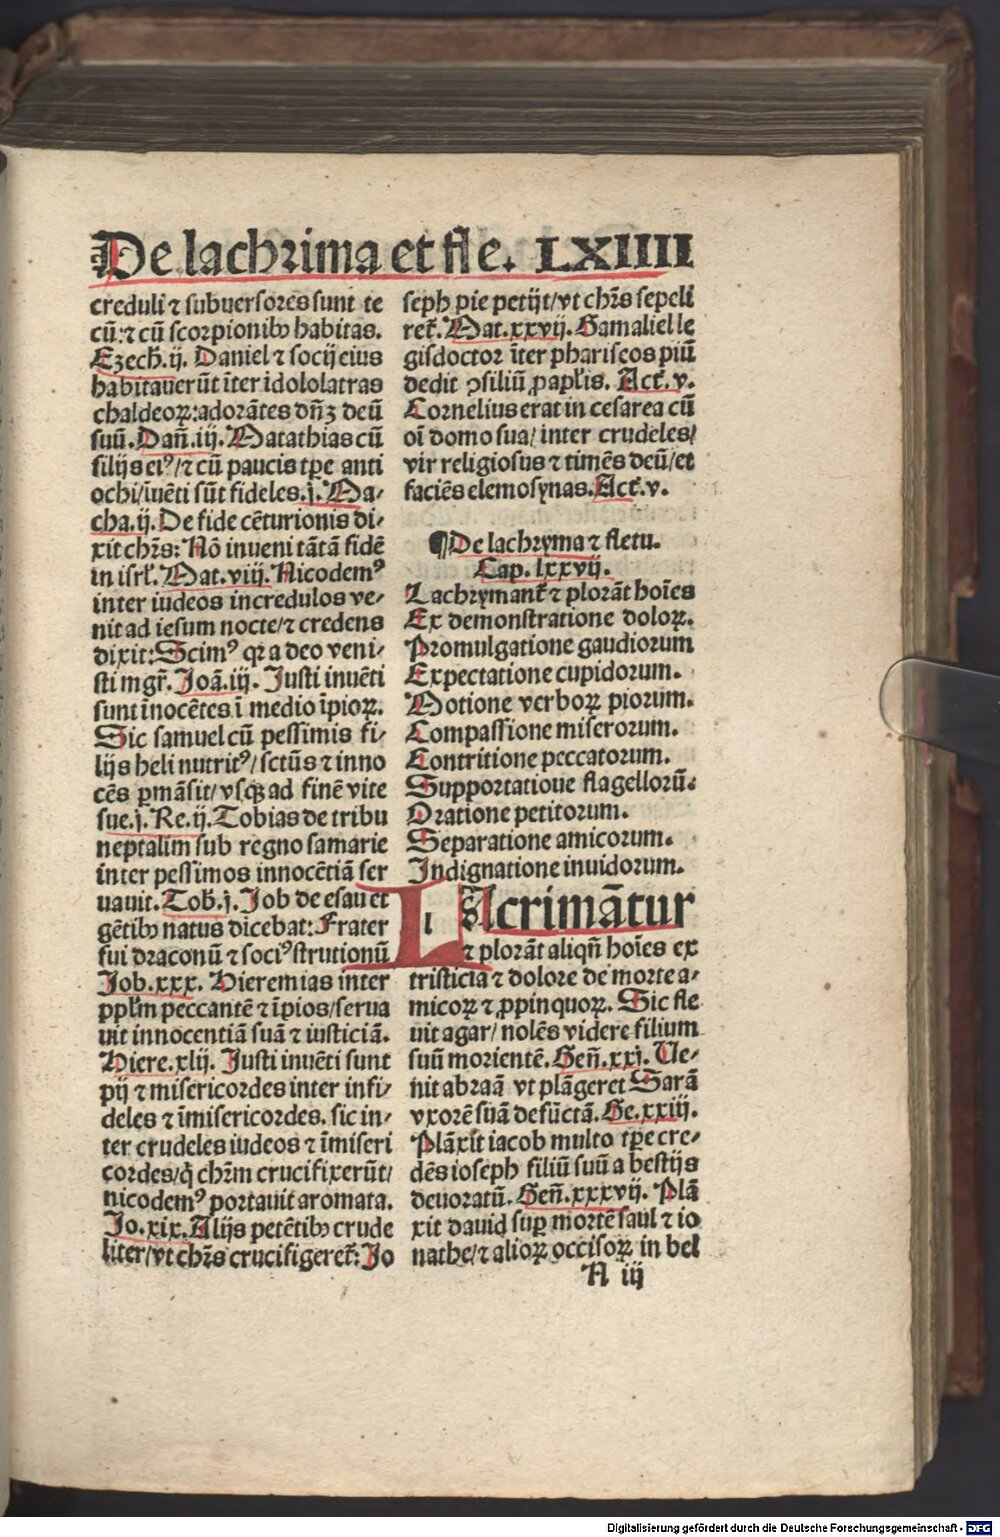 De lachrima et fle. LXIIII
creduli ⁊ subuersores sunt te
cū: ⁊ cū scorpionibꝰ habitas.
Ezech̄.ij. Daniel ⁊ socij eius
habitauerūt īter īdololatras
chaldeoꝝ: adorātes dn̄ꝫ deū
suū. Dan̄.iij. Matathias cū
filijs eiꝰ/ ⁊ cū paucis tꝑe anti
ochi/ īuēti sūt fideles. j. Ma/
cha.ij. De fide cēturionis di/
xit chr̄s: Nō inueni tātā fidē
in isrl̄. Mat.viij. Nicodemꝰ
inter iudeos incredulos ve/
nit ad iesum nocte/ ⁊ credens
dixit: Scimꝰ qꝛ a deo veni/
sti mgr̄. Joā.iij. Justi inuēti
sunt īnocētes ī medio īpioꝝ.
Sic samuel cū pessimis fi/
lijs heli nutritꝰ/ sctūs ⁊ inno
cēs ꝑmāsit/ vsqꝫ ad finē vite
sue. j. Re.ij. Tobias de tribu
neptalim sub regno samarie
inter pessimos innocētiā ser
uauit. Tob̄.j. Job de esau et
gētibꝰ natus dicebat: Frater
fui draconū ⁊ sociꝰ strutionū
Job.xxx. Hieremias inter
ppl̄m peccantē ⁊ īpios/ serua
uit innocentiā suā ⁊ iusticiā.
Hiere.xlij. Justi inuēti sunt
pij ⁊ misericordes inter infi/
deles ⁊ īmisericordes. sic in/
ter crudeles iudeos ⁊ īmiseri
cordes/ q̄ chr̄m crucifixerūt/
nicodemꝰ portauit aromata.
Jo.xix. Alijs petētibꝰ crude
liter/ vt chr̄s crucifigeret̄: Jo
seph pie petijt/ vt chr̄s sepeli
ret̄. Mat.xxvij. Gamaliel le
gisdoctor īter phariseos piū
dedit ꝯsiliū ꝓ apl̄is. Act̄.v.
Cornelius erat in cesarea cū
oī domo sua/ inter crudeles/
vir religiosus ⁊ timēs deū/ et
faciēs elemosynas. Act̄.v.
¶De lachryma ⁊ fletu.
Cap. lxxvij.
Lachrymant̄ ⁊ plorāt hoīes
Ex demonstratione doloꝝ.
Promulgatione gaudiorum
Expectatione cupidorum.
Motione verboꝝ piorum.
Compassione miserorum.
Contritione peccatorum.
Supportatioue flagellorū.
Oratione petitorum.
Separatione amicorum.
Indignatione inuidorum.
LAcrimātur
⁊ plorāt aliqn̄ hoīes ex
tristicia ⁊ dolore de morte a/
micoꝝ ⁊ ꝓpinquoꝝ. Sic fle
uit agar/ nolēs videre filium
suū morientē. Gen̄.xxj. Ue/
nit abraā vt plāgeret Sarā
vxorē suā defūctā. Ge.xxiij.
Plāxit iacob multo tꝑe cre/
dēs ioseph filiū suū a bestijs
deuoratū. Gen̄.xxxvij. Plā
xit dauid suꝑ mortē saul ⁊ io
nathe/ ⁊ alioꝝ occisoꝝ in bel
N iij
Digitalisierung gefördert durch die Deutsche Forschungsgemeinschaft - DFG